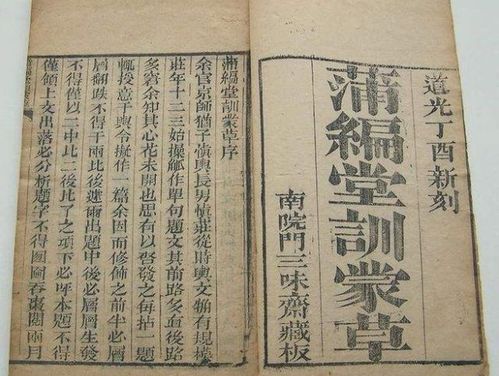 道光丁酉新刻
蒲編堂訓蒙草
南院門三味齋藏板
蒲編堂訓蒙草序
余官京師猶子慎輿長男慎莊從時輿文有規模
莊年十二三始操觚作單句題文其前路多直後路
多窘余知其心花未開也思有以啓發之每拈一題
輒授意于輿令擬作一篇余因而修飾之前半必層
層翻跌不得于兩比後遽爾出題中後必層層生發
不得僅以二中比二後比了之項下必呼本題不得
僅領上文出落必分析題字不得囫圇吞棗閱兩月